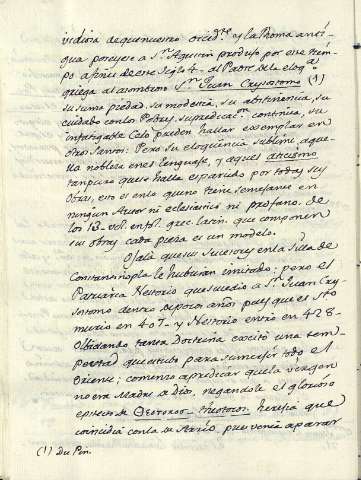 vidiosa de que nuestro Occid.te y la Roma anti-
gua poseyese a S.n Agustin produjo por este tiem-
po a fines de este siglo 4.º al Padre de la eloq.a
griega al asombroso S.n Juan Crysostomo (1)
su suma piedad su modestia, su abstinencia, su
cuidado con los Pobres su predicac.on continua, su
infatigable Celo pueden hallar exemplar en
otros Santos. Pero su eloquencia sublime, aque-
lla nobleza en el lenguage, y aquel atticismo
tan puro que se halla esparcido por todas sus
Obras, esto es en lo que no tiene semejante en
ningun Autor ni eclesiastico ni profano. De
los 13. vol. en fol. grec. latin. que componen
sus obras cada pieza es un modelo.
Ojala que sus sucesores en la Silla de
Constantinopla le hubieran imitado; pero el
Patriarca Nestorio que sucedio a S.n Juan Cry-
sostomo dentro de pocos años pues que el S.to
murio en 407. y Nestorio entro en 428.
Olbidando tanta Doctrina excitó una tem-
pestad que estubo para sumergir todo el
Oriente; comenzo a predicar que la Virgen
no era Madre de Dios, negandole el glorioso
epiteto de Θεοτοκος theotocos heregia que
coincidia con la de Arrio, pues venia a parar
(1) Du Pin.